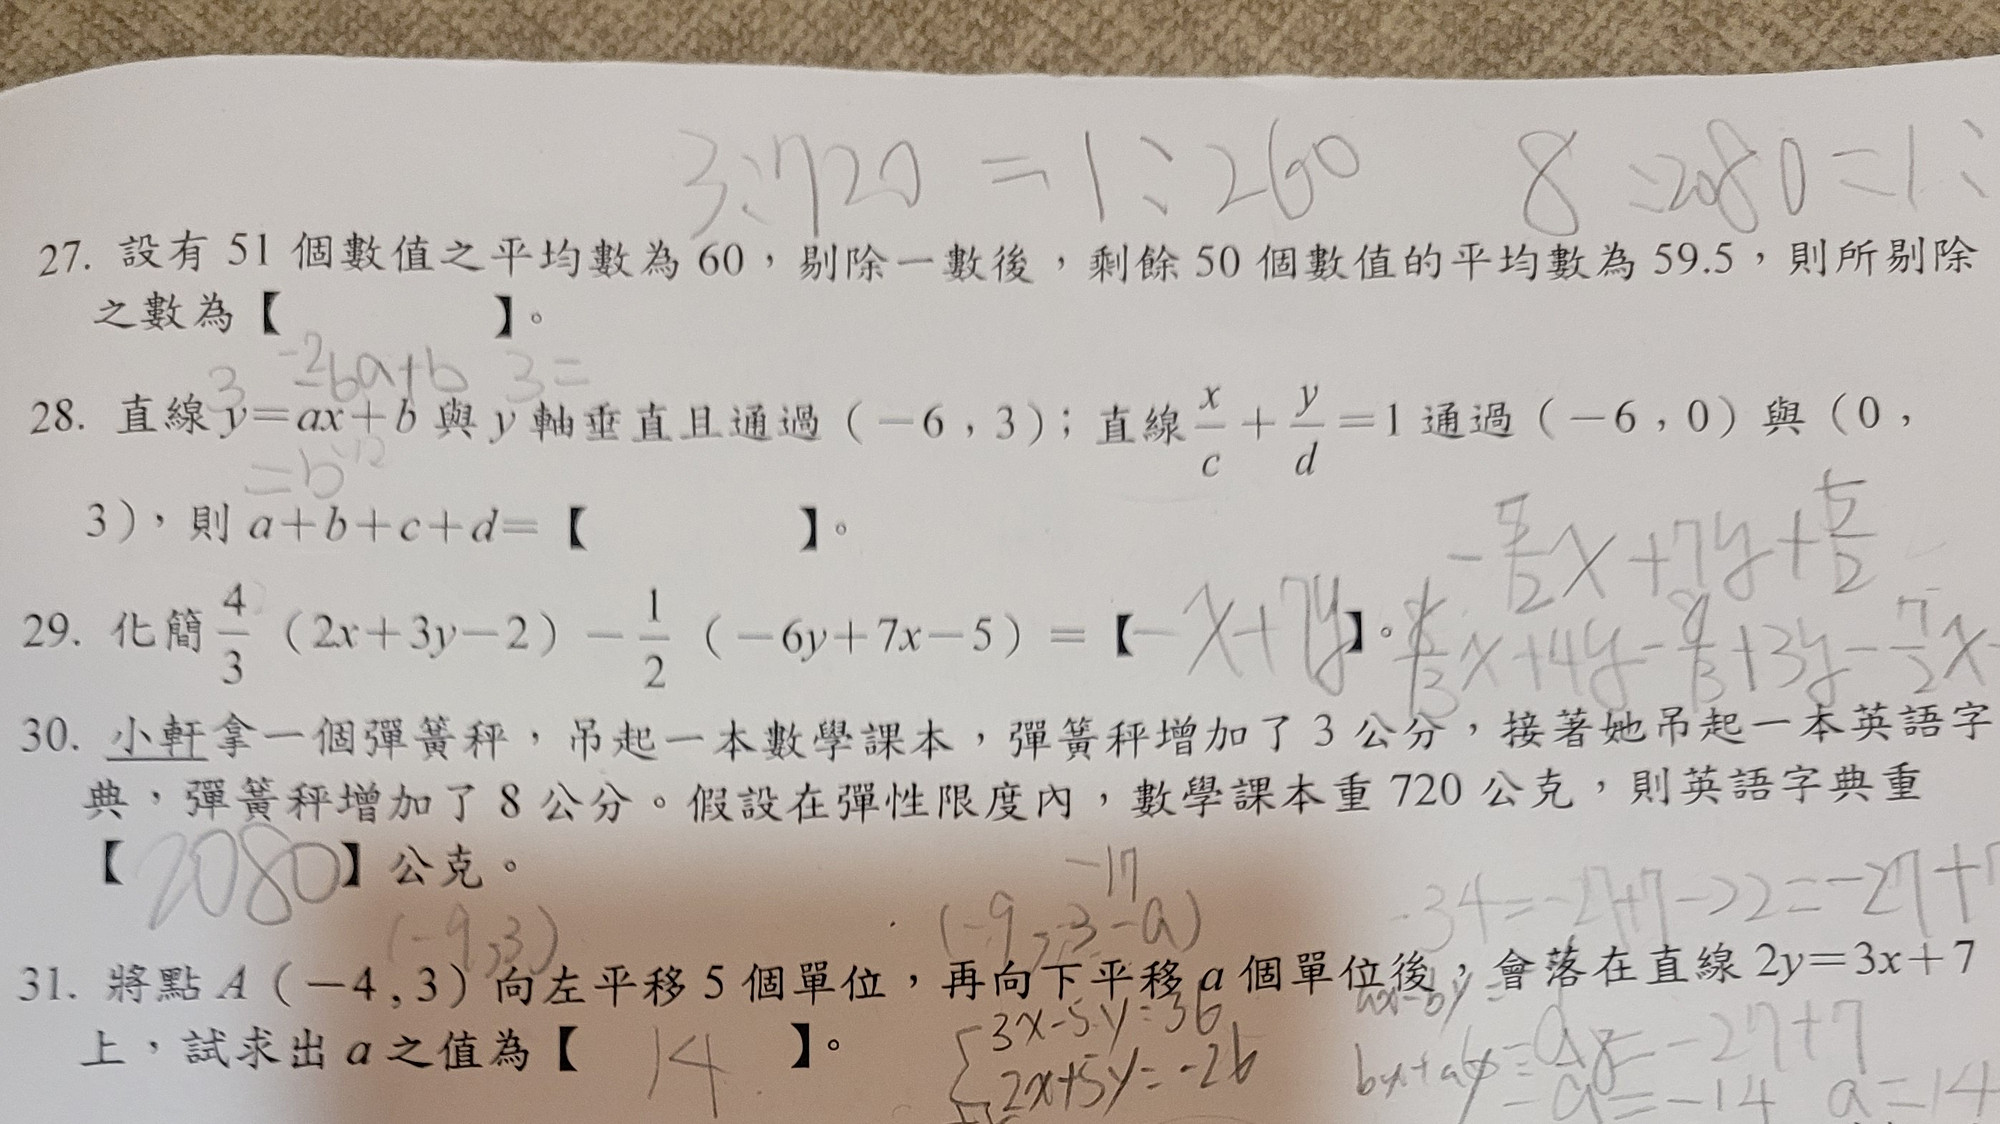 3:720=1:260 8:2080=1:
27. 設有 51 個數值之平均數為 60，剔除一數後，剩餘 50 個數值的平均數為 59.5，則所剔除
之數為【 】。
3 -6a+b 3=
28. 直線 y=ax+b 與 y 軸垂直且通過（-6,3）；直線 x/c + y/d =1 通過（-6,0）與（0,
=b
3），則 a+b+c+d=【 】。
x+7y+5/2
29. 化簡 4/3（2x+3y-2）- 1/2（-6y+7x-5）=【-x+7y】。
x+4y- +3y-7/2x-
30. 小軒拿一個彈簧秤，吊起一本數學課本，彈簧秤增加了 3 公分，接著她吊起一本英語字
典，彈簧秤增加了 8 公分。假設在彈性限度內，數學課本重 720 公克，則英語字典重
【2080】公克。
-17
(-9,3) (-9, 3-a) -34=-27+7-22=-27+7
31. 將點 A（-4,3）向左平移 5 個單位，再向下平移 a 個單位後，會落在直線 2y=3x+7
上，試求出 a 之值為【 14 】。
3x-5y=36
2x+5y=-26
=-27+7
=-14 a=14